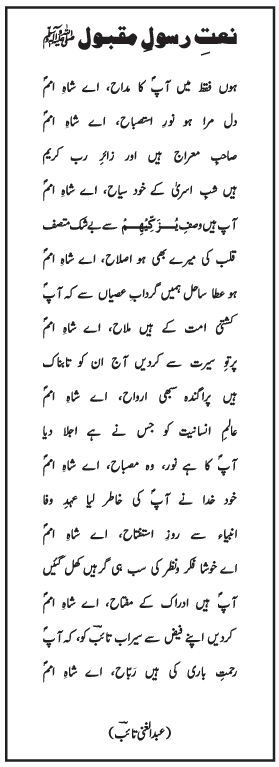 نعتِ رسولِ مقبول ﷺ
ہوں فقط میں آپؐ کا مداح، اے شاہِ اممؐ
دل مرا ہو نورِ استصباح، اے شاہِ اممؐ
صاحبِ معراج ہیں اور زائرِ ربِ کریم
ہیں شبِ اسریٰ کے خود سیاح، اے شاہِ اممؐ
آپ ہیں وصفِ یُزَکِّیْھِمْ سے بے شک متصف
قلب کی میرے بھی ہو اصلاح، اے شاہِ اممؐ
ہو عطا ساحل ہمیں گردابِ عصیاں سے کہ آپؐ
کشتیٔ امت کے ہیں ملاح، اے شاہِ اممؐ
پرتوِ سیرت سے کردیں آج ان کو تابناک
ہیں پراگندہ سبھی ارواح، اے شاہِ اممؐ
عالمِ انسانیت کو جس نے ہے اجلا دیا
آپؐ کا ہے نور، وہ مصباح، اے شاہِ اممؐ
خود خدا نے آپؐ کی خاطر لیا عہدِ وفا
انبیاء سے روزِ استفتاح، اے شاہِ اممؐ
اے خوشا فکر ونظر کی سب ہی گرہیں کھل گئیں
آپؐ ہیں ادراک کے مفتاح، اے شاہِ اممؐ
کردیں اپنے فیض سے سیراب تائبؔ کو، کہ آپؐ
رحمتِ باری کی ہیں رَیّاح، اے شاہِ اممؐ
(عبدالغنی تائبؔ)